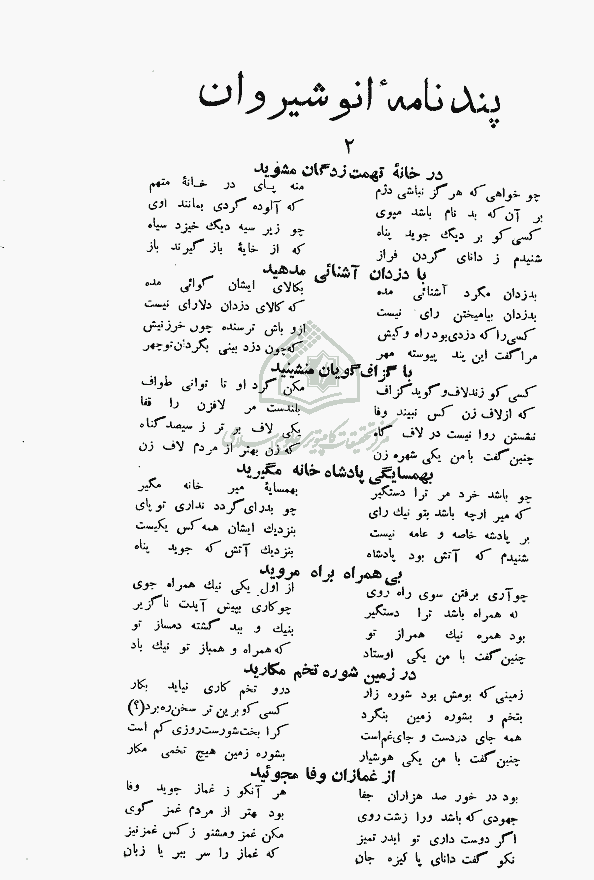 پندنامهٔ انوشیروان
۲
در خانهٔ تهمت زدگان مشوید
چو خواهی که هرگز نباشی دژم منه پای در خانهٔ متهم
بر آن که بد نام باشد میوی که آلوده گردی بمانند اوی
کسی کو بر دیگ جوید پناه چو زیر سیه دیگ خیزد سیاه
شنیدم ز دانای گردن فراز که از خایهٔ باز گیرند باز
با دزدان آشنائی مدهید
بدزدان مگرد آشنائی مده بکالای ایشان گوائی مده
بدزدان بیامیختن رای نیست که کالای دزدان دلارای نیست
کسی را که دزدی بود راه و کیش ازو باش ترسنده چون خرزنیش
مرا گفت این پند پیوسته مهر که چون دزد بینی بگردان تو چهر
با گزاف گویان منشینید
کسی کو زند لاف و گوید گزاف مکن گرد او تا توانی طواف
که از لاف زن کس نبیند وفا بلندست مر لافزن را قفا
نشستن روا نیست در لاف گاه یکی لاف بر تر ز سیصد گناه
چنین گفت با من یکی شهره زن که زن بهتر از مردم لاف زن
بهمسایگی پادشاه خانه مگیرید
چو باشد خرد مر ترا دستگیر بهمسایهٔ میر خانه مگیر
که میر ارچه باشد بتو نیك رای چو بدرای گردد نداری تو پای
بر پادشه خاصه و عامه نیست بنزدیك ایشان همه کس یکیست
شنیدم که آتش بود پادشاه بنزدیك آتش که جوید پناه
بی همراه براه مروید
چو آری برفتن سوی راه روی از اول یکی نیك همراه جوی
که همراه باشد ترا دستگیر چو کاری بپیش آیدت ناگزیر
بود همره نیك همراز تو بنیك و ببد گشته دمساز تو
چنین گفت با من یکی اوستاد که همراه و همباز تو نیك باد
در زمین شوره تخم مکارید
زمینی که بومش بود شوره زار درو تخم کاری نیاید بکار
بتخم و بشوره زمین بنگرد کسی کو برین تر سخن ره برد(؟)
همه جای دردست و جای غم است کرا بخت شورست روزی کم است
چنین گفت با من یکی هوشیار بشوره زمین هیچ تخمی مکار
از غمازان وفا مجوئید
بود در خور صد هزاران جفا هر آنکو ز غماز جوید وفا
جهودی که باشد ورا زشت روی بود بهتر از مردم غمز گوی
اگر دوست داری تو ایدر تمیز مکن غمز و مشنو ز کس غمز نیز
نکو گفت دانای پاکیزه جان که غماز را سر ببر یا زبان